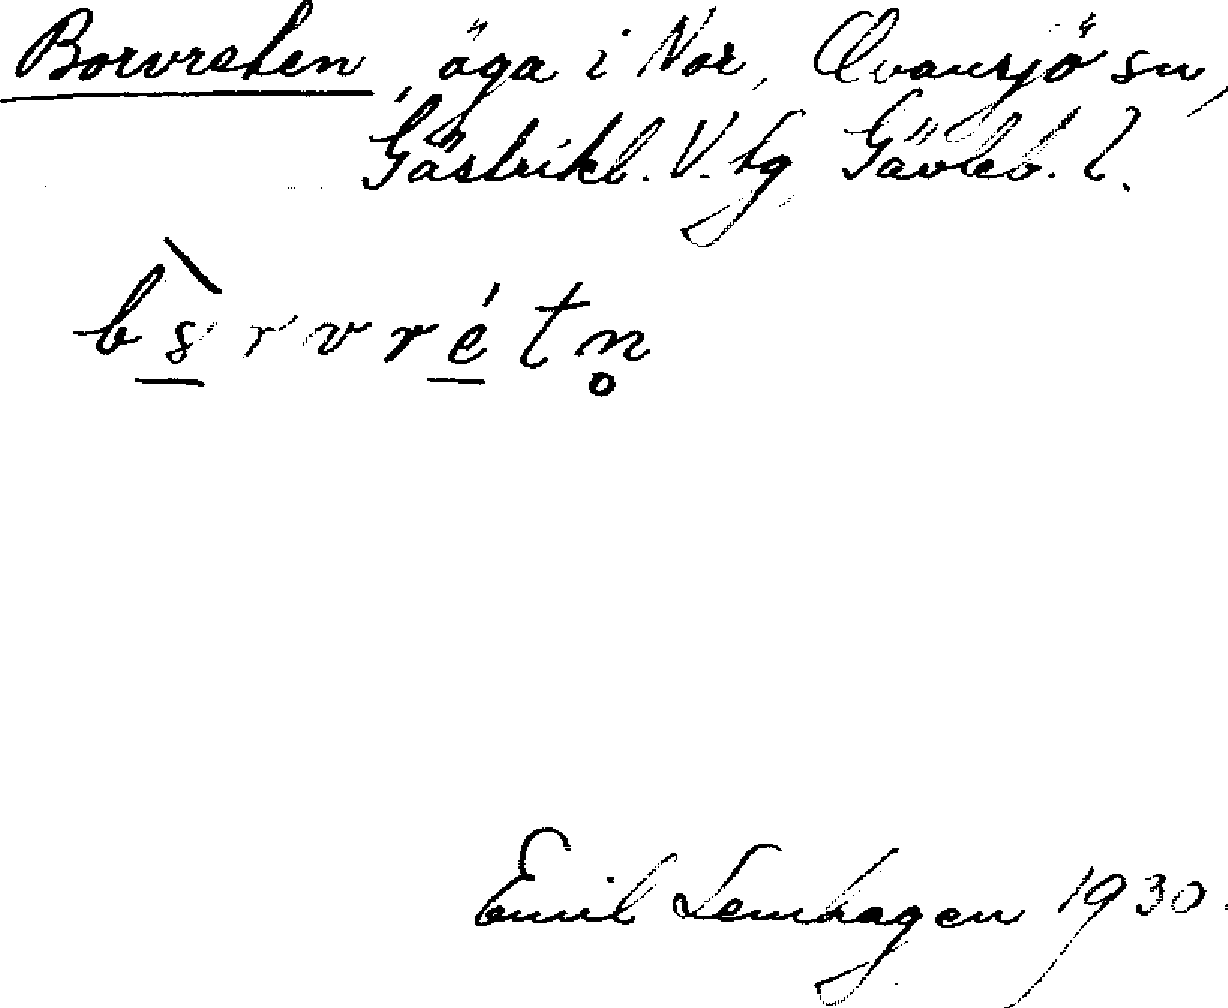 Borvreten, äga i Nor, Ovansjö sn,
Gästrikl. V. tg, Gävleb. l.
b s̱̀ r v r é̱ t n̥
Emil Lemhagen 1930.